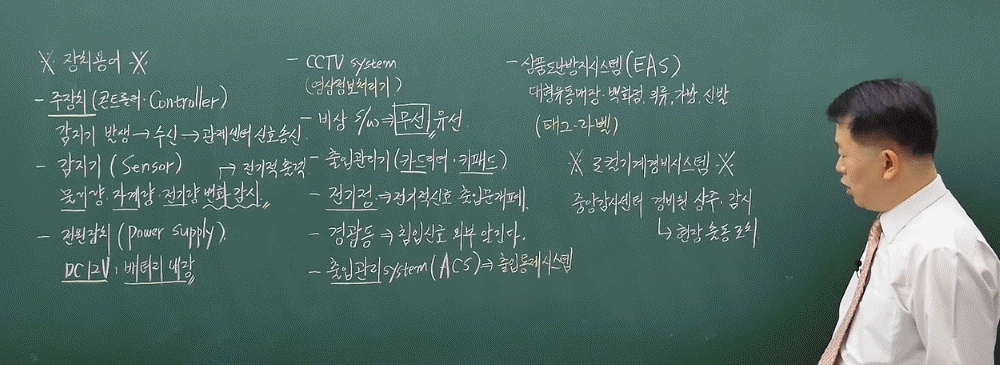 ※ 장치용어 ※
- 주장치 (콘트롤러·Controller)
감지기 발생 → 수신 → 관제센터 신호송신.
- 감지기 (Sensor) → 전기적 출력
물리량·자계량·전기량 변화 감시
- 전원장치 (power supply).
DC12V, 배터리 내장
- CCTV system
(영상정보처리기)
- 비상 S/W ⇒ 무선, 유선
- 출입관리기 (카드리더·키패드)
- 전기정 → 전기적신호 출입문개폐.
- 경광등 ⇒ 침입신호 외부 알린다.
- 출입관리system (ACS) ⇒ 출입통제시스템
- 상품도난방지시스템 (EAS)
대형유통매장·백화점, 의류, 가방, 신발
(태그·라벨)
※ 로컬기계경비시스템 ※
중앙감시센터 경비원 상주·감시
↳ 현장 출동 조치